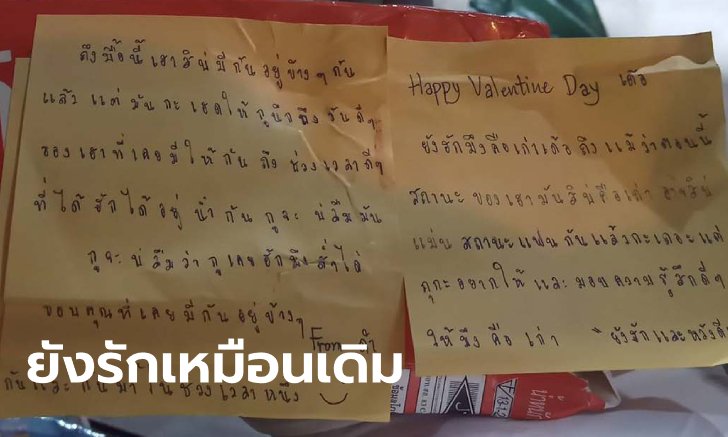 ถึงมื้อนี้เฮาสิบ่มีกันอยู่ข้างๆกัน
แล้ว แต่มันกะเฮดให้กูนึกถึงวันดีๆ
ของเฮาที่เคยมีให้กัน ถึงช่วงเวลาดีๆ
ที่ได้ฮักได้อยู่นำกัน กูจะบ่ลืมมัน
กูจะบ่ลืมว่ากูเคยฮักมึงส่ำได๋
ขอบคุณที่เคยมีกันอยู่ข้างๆ
From
กันและกันมาในช่วงเวลาหนึ่ง
Happy Valentine Day เด้อ
ยังฮักมึงคือเก่าเด้อ ถึงแม้ว่าตอนนี้
สถานะของเฮามันสิบ่คือเก่า
แม่นสถานะแฟนกันแล้วกะเถอะแต่
กูกะอยากให้และมอบความรู้สึกดีๆ
ให้มึงคือเก่า ยังฮักและหวังดี
ยังรักเหมือนเดิม